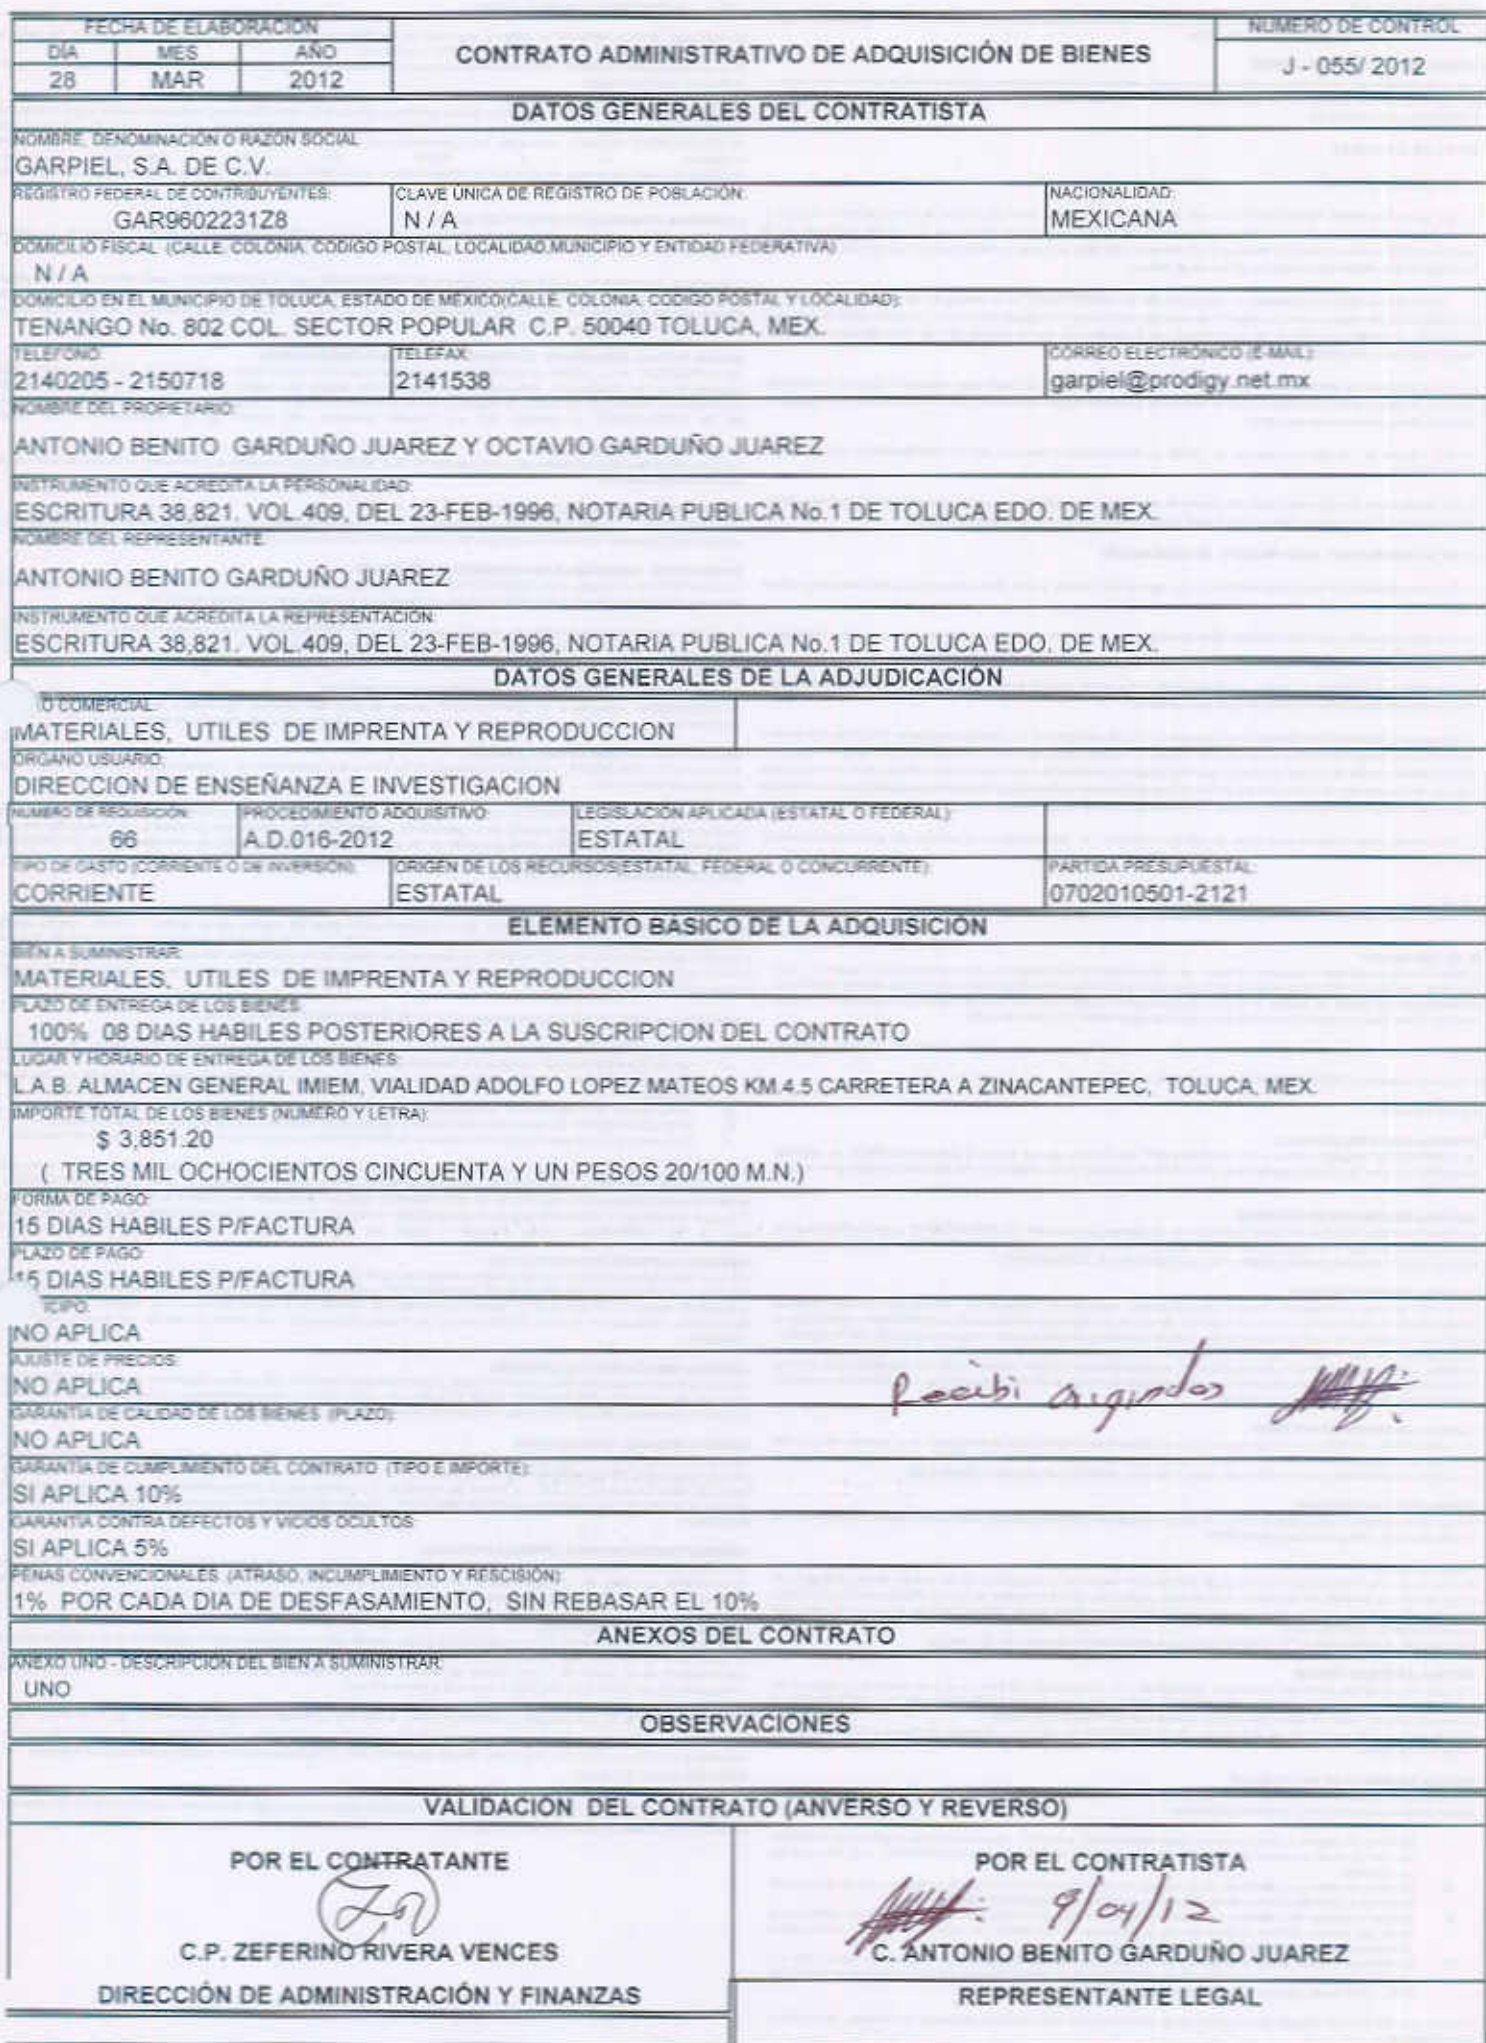 FECHA DE ELABORACIÓN
DÍA MES AÑO
28 MAR 2012
CONTRATO ADMINISTRATIVO DE ADQUISICIÓN DE BIENES
NUMERO DE CONTROL
J - 055/ 2012
DATOS GENERALES DEL CONTRATISTA
NOMBRE, DENOMINACIÓN O RAZÓN SOCIAL
GARPIEL, S.A. DE C.V.
REGISTRO FEDERAL DE CONTRIBUYENTES: CLAVE ÚNICA DE REGISTRO DE POBLACIÓN: NACIONALIDAD:
GAR9602231Z8 N / A MEXICANA
DOMICILIO FISCAL (CALLE, COLONIA, CODIGO POSTAL, LOCALIDAD,MUNICIPIO Y ENTIDAD FEDERATIVA)
N / A
DOMICILIO EN EL MUNICIPIO DE TOLUCA, ESTADO DE MÉXICO(CALLE, COLONIA, CODIGO POSTAL Y LOCALIDAD):
TENANGO No. 802 COL. SECTOR POPULAR C.P. 50040 TOLUCA, MEX.
TELÉFONO: TELEFAX: CORREO ELECTRÓNICO (E-MAIL):
2140205 - 2150718 2141538 garpiel@prodigy.net.mx
NOMBRE DEL PROPIETARIO:
ANTONIO BENITO GARDUÑO JUAREZ Y OCTAVIO GARDUÑO JUAREZ
INSTRUMENTO QUE ACREDITA LA PERSONALIDAD:
ESCRITURA 38,821. VOL.409, DEL 23-FEB-1996, NOTARIA PUBLICA No.1 DE TOLUCA EDO. DE MEX.
NOMBRE DEL REPRESENTANTE:
ANTONIO BENITO GARDUÑO JUAREZ
INSTRUMENTO QUE ACREDITA LA REPRESENTACIÓN:
ESCRITURA 38,821. VOL.409, DEL 23-FEB-1996, NOTARIA PUBLICA No.1 DE TOLUCA EDO. DE MEX.
DATOS GENERALES DE LA ADJUDICACIÓN
O COMERCIAL:
MATERIALES, UTILES DE IMPRENTA Y REPRODUCCION
ORGANO USUARIO:
DIRECCION DE ENSEÑANZA E INVESTIGACION
NUMERO DE REQUISICIÓN: PROCEDIMIENTO ADQUISITIVO: LEGISLACIÓN APLICADA (ESTATAL O FEDERAL):
66 A.D.016-2012 ESTATAL
TIPO DE GASTO (CORRIENTE O DE INVERSIÓN): ORIGEN DE LOS RECURSOS(ESTATAL, FEDERAL O CONCURRENTE): PARTIDA PRESUPUESTAL:
CORRIENTE ESTATAL 0702010501-2121
ELEMENTO BÁSICO DE LA ADQUISICIÓN
BIEN A SUMINISTRAR:
MATERIALES, UTILES DE IMPRENTA Y REPRODUCCION
PLAZO DE ENTREGA DE LOS BIENES:
100% 08 DIAS HABILES POSTERIORES A LA SUSCRIPCION DEL CONTRATO
LUGAR Y HORARIO DE ENTREGA DE LOS BIENES:
L.A.B. ALMACEN GENERAL IMIEM, VIALIDAD ADOLFO LOPEZ MATEOS KM.4.5 CARRETERA A ZINACANTEPEC, TOLUCA, MEX.
IMPORTE TOTAL DE LOS BIENES (NUMERO Y LETRA):
$ 3,851.20
( TRES MIL OCHOCIENTOS CINCUENTA Y UN PESOS 20/100 M.N.)
FORMA DE PAGO:
15 DIAS HABILES P/FACTURA
PLAZO DE PAGO:
15 DIAS HABILES P/FACTURA
ICIPO:
NO APLICA
AJUSTE DE PRECIOS:
NO APLICA
Recibi
GARANTÍA DE CALIDAD DE LOS BIENES (PLAZO):
NO APLICA
GARANTÍA DE CUMPLIMIENTO DEL CONTRATO (TIPO E IMPORTE):
SI APLICA 10%
GARANTÍA CONTRA DEFECTOS Y VICIOS OCULTOS:
SI APLICA 5%
PENAS CONVENCIONALES (ATRASO, INCUMPLIMIENTO Y RESCISIÓN):
1% POR CADA DIA DE DESFASAMIENTO, SIN REBASAR EL 10%
ANEXOS DEL CONTRATO
ANEXO UNO - DESCRIPCIÓN DEL BIEN A SUMINISTRAR:
UNO
OBSERVACIONES
VALIDACIÓN DEL CONTRATO (ANVERSO Y REVERSO)
POR EL CONTRATANTE
C.P. ZEFERINO RIVERA VENCES
DIRECCIÓN DE ADMINISTRACIÓN Y FINANZAS
POR EL CONTRATISTA
9/04/12
C. ANTONIO BENITO GARDUÑO JUAREZ
REPRESENTANTE LEGAL